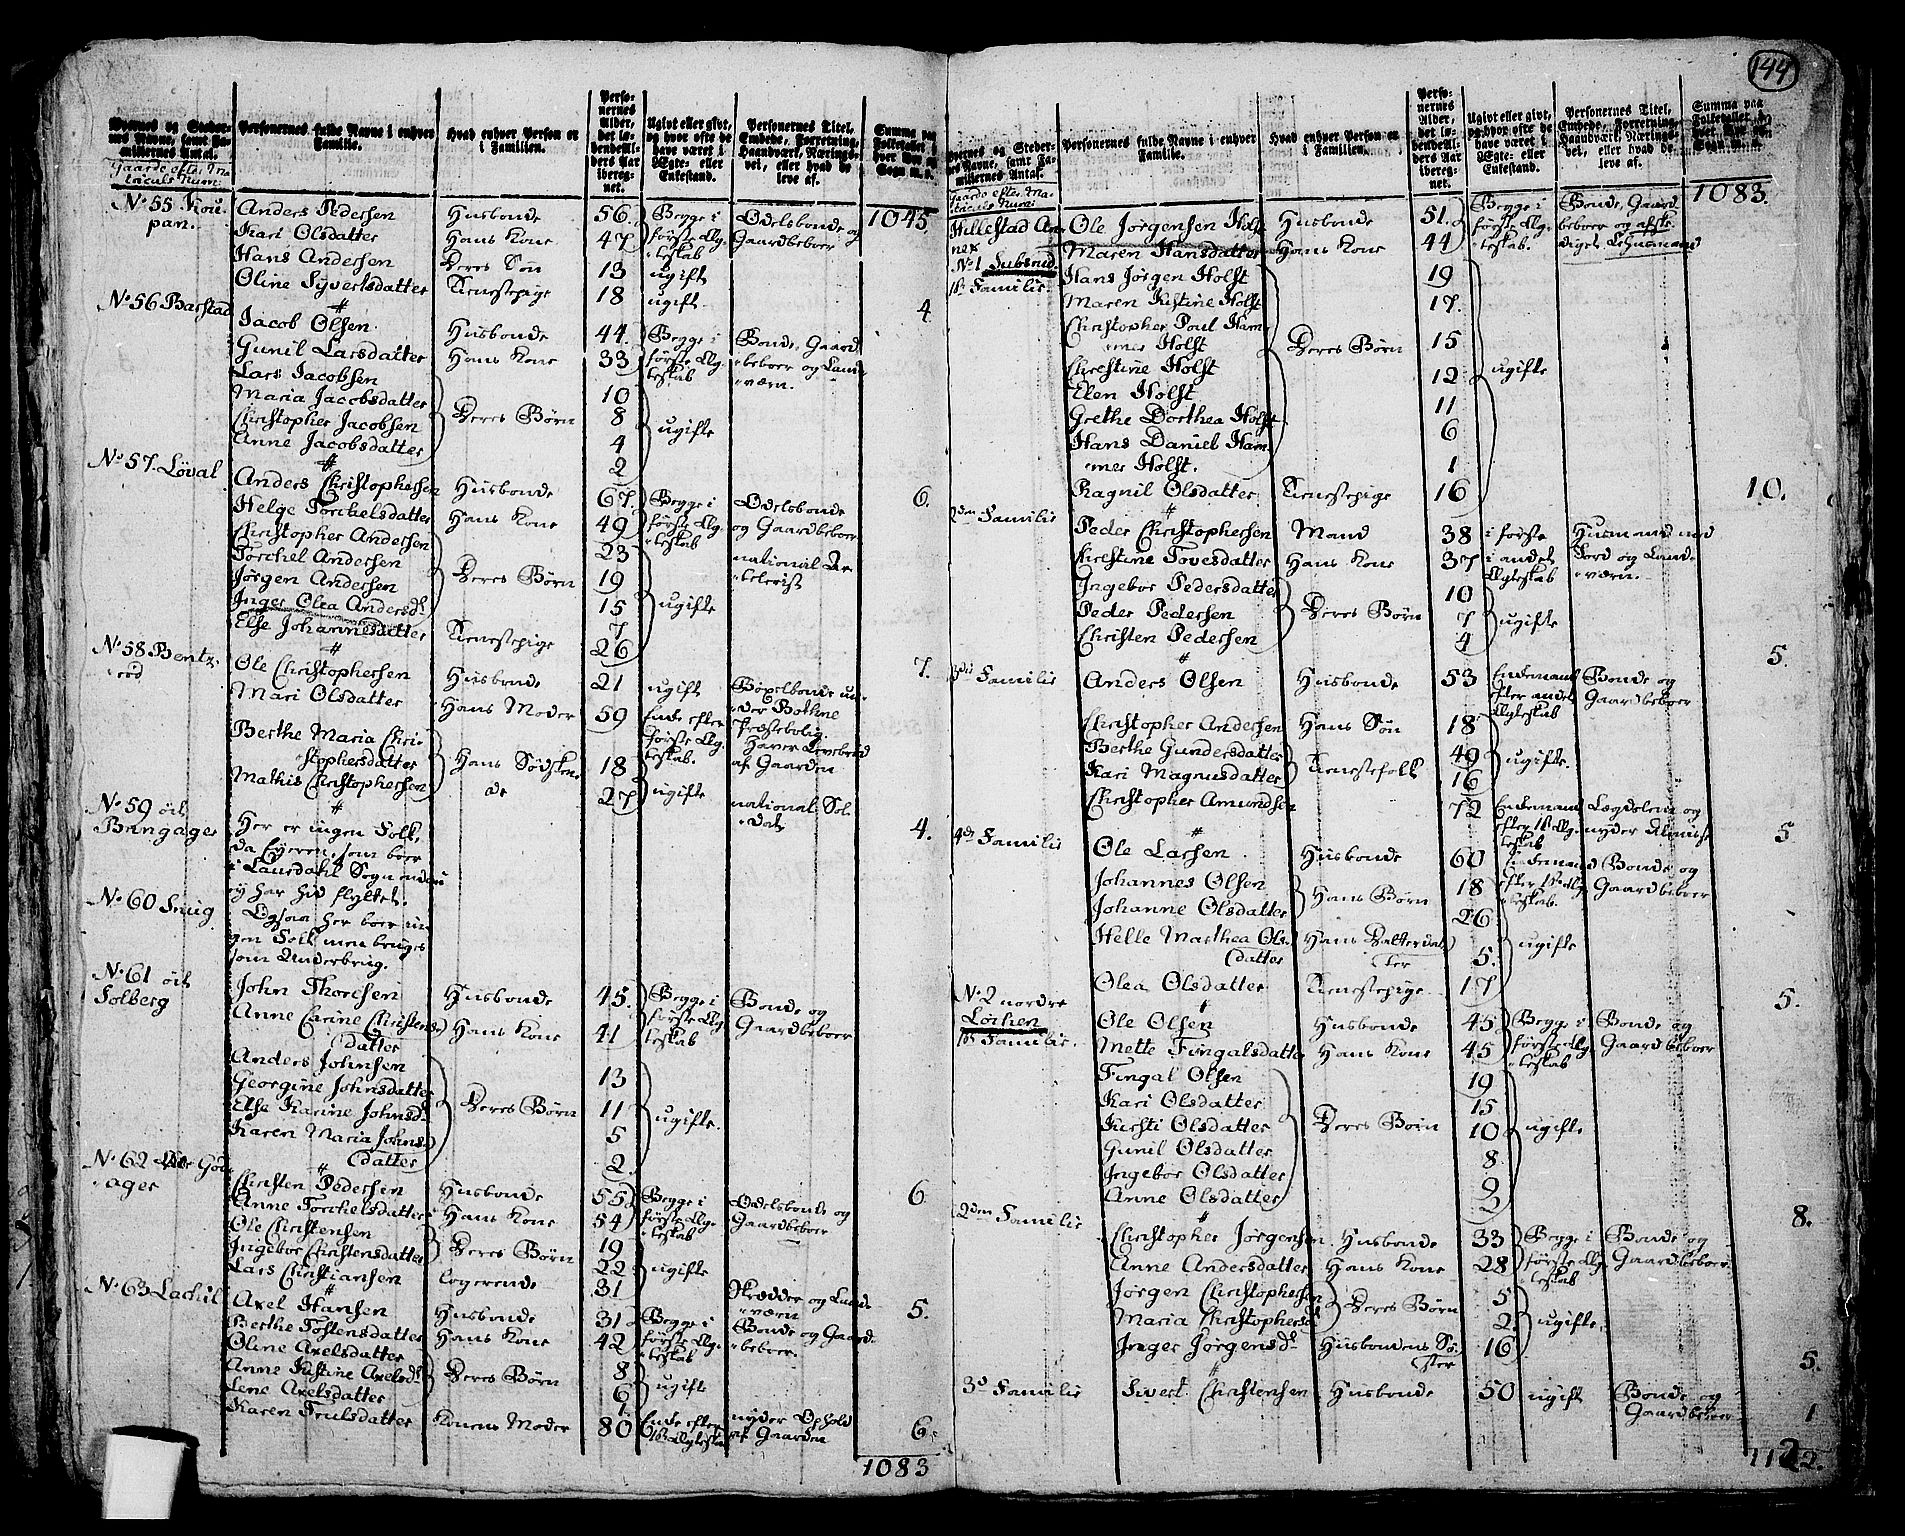 144
Byernes og Stedernes Navne, samt Familiernes Antal.
Gaarde efter Matriculs Num:
Personernes fulde Navne i enhver Familie.
Hvad enhver Person er i Familien.
Personernes Alder, det løbendeAlders Aar iberegnet.
Ugivt eller givt, og hvor ofte de have været i Ægte- eller Enkestand.
Personernes Titel, Embede, Forretning, Haandværk, Næringsvei, eller hvad de leve af.
Summa paa Folketallet i hver Bye og Sogn m. v.
1045.
No 55 Kou-
pan.
Anders Pedersen Husbonde 56. Begge i Odelsbonde og
Kari Olsdatter Hans Kone 47 første Æg- Gaardbeboer
teskab
Hans Andersen Deres Søn 13 ugift
Oline Syvertsdatter Tienestepige 18 ugift. 4
No 56 Barstad
Jacob Olsen Husbonde 44. Begge i Bonde, Gaard-
Gunil Larsdatter Hans Kone 33 første Æg- beboer og Land-
teskab værn.
Lars Jacobsen 10
Maria Jacobsdatter 8
Christopher Jacobsen Deres Børn 4 ugifte
Anne Jacobsdatter 2 6.
No 57. Løval
Anders Christophersen Husbonde 67. Begge i Odelsbonde
Helge Torchelsdatter Hans Kone 49 første Æg- og Gaardbeboer
teskab
Christopher Andersen 23 national Ar-
Torchel Andersen 19 telerist
Jørgen Andersen Deres Børn 15 ugifte
Inger Olea Andersd. 7
Else Johannesdatter Tienestepige 26 7.
No 58 Bentz-
rød
Ole Christophersen Husbonde 21 ugift Bøxelbonde un-
Mari Olsdatter Hans Moder 59 Enke efter der Bothne
første Æg- Præstebolig.
teskab. Haver Levebrød
af Gaarden
Berthe Maria Chri-
stophersdatter Hans Sødsken- 18
Mathis Christophersen de 27 ugifte national Sol-
dat 4.
No 59 öst
Bringager
Her er ingen Folk,
da Eyeren, som boer
i Laurdahl Sogn endnu
ey har hid flyttet.
No 60 Snug
Ogsaa her boer in-
gen Folk men bruges
som Underbrug.
No 61 öst
Solberg
John Thoresen Husbonde 45. Begge i Bonde og
Anne Carine Christens- Hans Kone 41 første Æg- Gaardbeboer
datter teskab
Anders Johnsen 13
Georgine Johnsdatter 11
Else Karine Johnsd. Deres Børn 5 ugifte.
Karen Maria Johns- 2.
datter 6
No 62 God-
ager
Christen Pedersen Husbonde 55 Begge i Odelsbonde og
Anne Torchelsdatter Hans Kone 54 første Æg- Gaardbeboer
teskab
Ole Christensen 19
Ingebor Christensdatter Deres Børn 22 ugifte
Lars Christiansen logerende 31 Skredder og Land-
værn 5.
No 63 Lachil
Axel Hansen Husbonde 31 Begge i Bonde og Gaard-
Berthe Tostensdatter Hans Kone 42 første Æg- beboer.
teskab
Oline Axelsdatter 8
Anne Kistine Axelsd. Deres Børn 6 ugifte
Lene Axelsdatter 1
Karen Trulsdatter Konens Moder 80 Enke efter nyder Ophold
1st Ægteskab af Gaarden 6.
1083
Byernes og Stedernes Navne, samt Familiernes Antal.
Gaarde efter Matriculs Num:
Personernes fulde Navne i enhver Familie.
Hvad enhver Person er i Familien.
Personernes Alder, det løbendeAlders Aar iberegnet.
Ugivt eller givt, og hvor ofte de have været i Ægte- eller Enkestand.
Personernes Titel, Embede, Forretning, Haandværk, Næringsvei, eller hvad de leve af.
Summa paa Folketallet i hver Bye og Sogn m. v.
1083.
Hillestad An-
nex
No 1
1st Familie
Ole Jørgensen Holst Husbonde 51. Begge i Bonde, Gaard-
Maren Hansdatter Hans Kone 44 første Æg- beboer og afske-
teskab. diget Lehnsmand
Hans Jørgen Holst 19
Maren Kistine Holst 17.
Christopher Poul Ham-
mer Holst Deres Børn 15
Christine Holst 12 ugifte
Elen Holst 11
Grethe Dorthea Holst 6
Hans Daniel Ham-
mer Holst. 1
Ragnil Olsdatter Tienestepige 16 10.
2den Familie
Peder Christophersen Mand 38 i første Husmand med
Kirstine Tovesdatter Hans Kone 37 i andet Jord og Land-
Ægteskab værn.
Ingebor Pedersdatter 10
Peder Pedersen Deres Børn 7 ugifte
Christen Pedersen 4 5.
3die Familie
Anders Olsen Husbonde 53 Enkemand Bonde og
efter andet Gaardbeboer
Ægteskab
Christopher Andersen Hans Søn 18
Berthe Gundersdatter 49 ugifte.
Kari Magnusdatter Tienestefolk 16
Christopher Amundsen 72 Enkemand Lægdslem og
efter 1st Æg- nyder Almisse
teskab 5
4de Familie
Ole Larsen Husbonde 60 Enkemand Bonde og
efter 1st Æg- Gaardbeboer
teskab.
Johannes Olsen 18
Johanne Olsdatter Hans Børn 26
Helle Marthea Ols- Hans Datterdat- ugifte
datter ter 5.
Olea Olsdatter Tienestepige. 17 5.
No 2 nordre
Lørken
1st Familie.
Ole Olsen Husbonde 45 Begge i Bonde og
Mette Fingalsdatter Hans Kone 45 første Æg- Gaardbeboer
teskab
Fingal Olsen 19
Kari Olsdatter 15
Kirsti Olsdatter Deres Børn 10 ugifte
Gunil Olsdatter 8
Ingebor Olsdatter
Anne Olsdatter 2 8.
2den Familie
Christopher Jørgensen Husbonde 33 Begge i Bonde og
Anne Andersdatter Hans Kone 28 første Æg- Gaardbeboer
teskab
Jørgen Christophersen 5
Maria Christophersd. Deres Børn 2. ugifte.
Inger Jørgensd. Husbondens Sø- 16
ster 5.
3d Familie
Sivert Christensen Husbonde 50 ugift Bonde og
Gaardbeboer 1
1122.